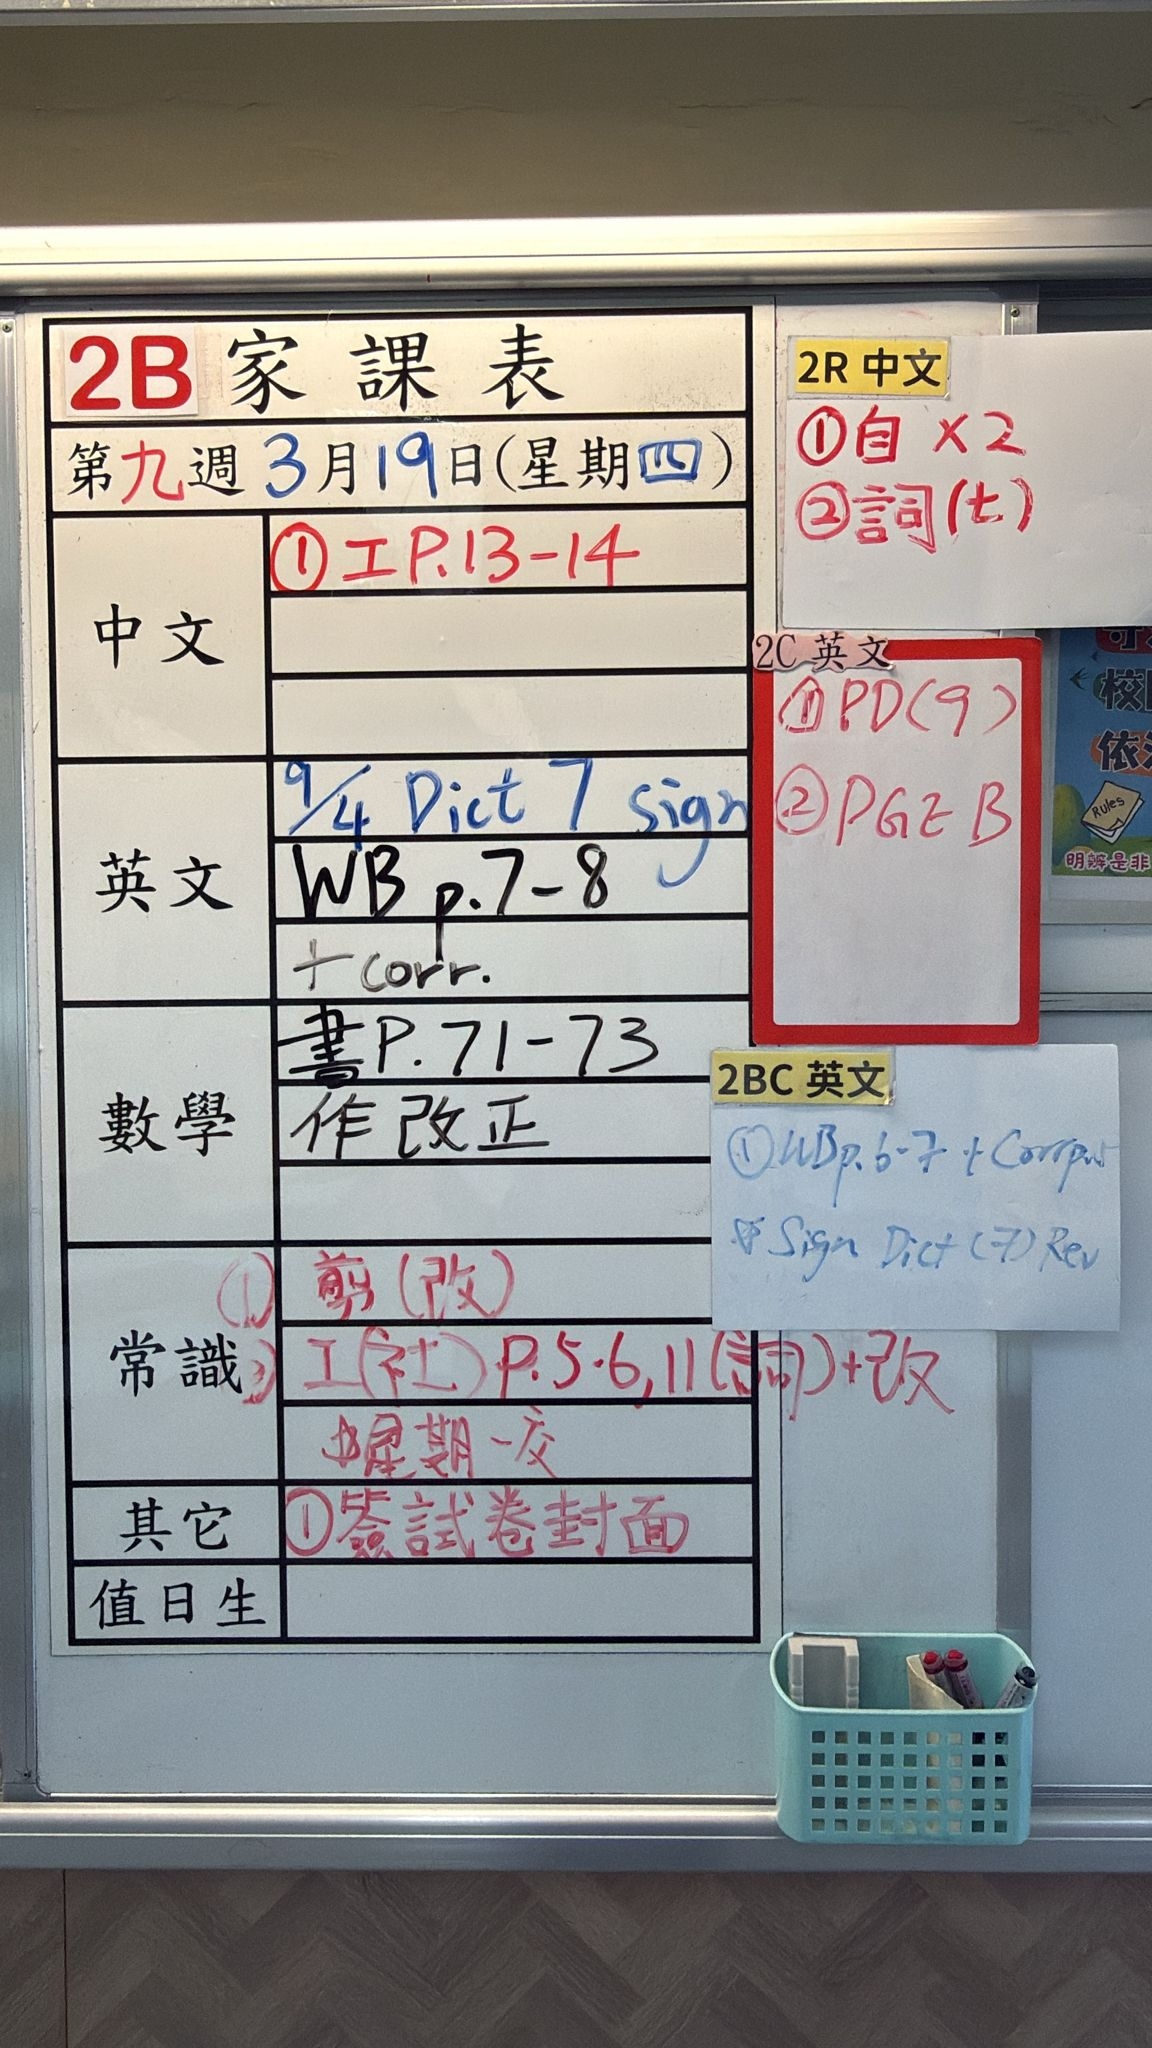 2B 家課表
第九週 3月19日(星期四)
中文
① 工 P.13-14
英文
9/4 Dict 7 sign
WB p.7-8
+ corr.
數學
書 P. 71-73
作 改正
常識
① 剪(改)
工(社) P.5-6, 11(詞)+改
星期一交
其它
① 簽試卷封面
值日生
2R 中文
① 自 X2
② 詞(七)
2C 英文
① PD(9)
② PGE B
2BC 英文
① WB p.6-7 +
* Sign Dict (7) Rev
校
依
Rules
明辨是非